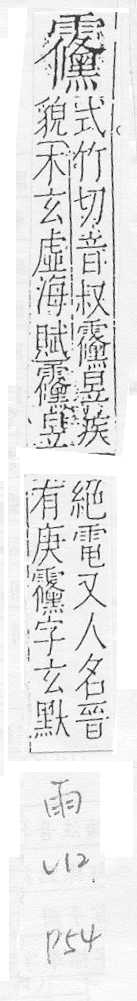 式竹切音叔昱疾
貌木玄虛海賦昱
絕電又人名晉
有庚字玄默
雨
V12
P54